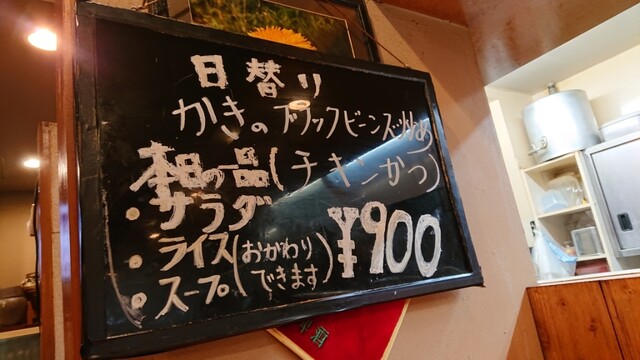 日替り
かきのブラックビーンズ炒め
本日の一品(チキンかつ)
・サラダ
・ライス(おかわり
・スープ できます)
¥900
酒